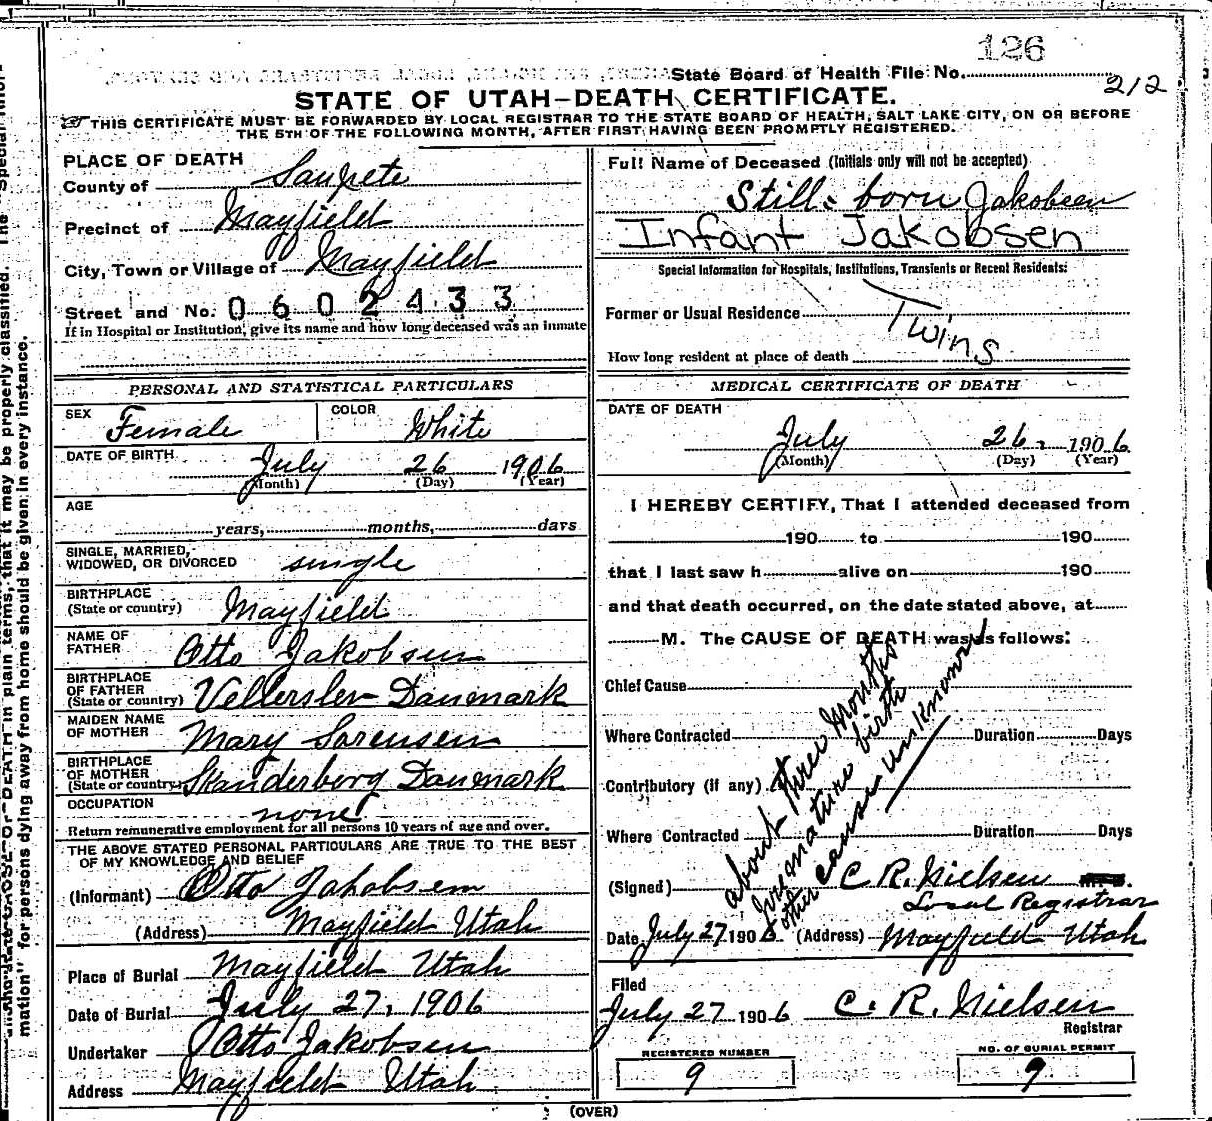 126
State Board of Health File No.
212
STATE OF UTAH—DEATH CERTIFICATE.
THIS CERTIFICATE MUST BE FORWARDED BY LOCAL REGISTRAR TO THE STATE BOARD OF HEALTH, SALT LAKE CITY, ON OR BEFORE
THE 5TH OF THE FOLLOWING MONTH, AFTER FIRST HAVING BEEN PROMPTLY REGISTERED.
PLACE OF DEATH
County of Sanpete
Precinct of Mayfield
City, Town or Village of Mayfield
Street and No. 0602433
If in Hospital or Institution, give its name and how long deceased was an inmate
PERSONAL AND STATISTICAL PARTICULARS
SEX Female COLOR White
DATE OF BIRTH July 26 1906
(Month) (Day) (Year)
AGE
years, months, days
SINGLE, MARRIED,
WIDOWED, OR DIVORCED single
BIRTHPLACE
(State or country) Mayfield
NAME OF
FATHER Otto Jakobsen
BIRTHPLACE
OF FATHER
(State or country) Vellerslev Danmark
MAIDEN NAME
OF MOTHER Mary Sorensen
BIRTHPLACE
OF MOTHER
(State or country) Skanderborg Danmark
OCCUPATION none
Return remunerative employment for all persons 10 years of age and over.
THE ABOVE STATED PERSONAL PARTICULARS ARE TRUE TO THE BEST
OF MY KNOWLEDGE AND BELIEF
(Informant) Otto Jakobsen
(Address) Mayfield Utah
Place of Burial Mayfield Utah
Date of Burial July 27, 1906
Undertaker Otto Jakobsen
Address Mayfield Utah
Full Name of Deceased (Initials only will not be accepted)
Still-born Jakobsen
Infant Jakobsen
Special Information for Hospitals, Institutions, Transients or Recent Residents:
Former or Usual Residence
Twins
How long resident at place of death
MEDICAL CERTIFICATE OF DEATH
DATE OF DEATH
July 26, 1906
(Month) (Day) (Year)
I HEREBY CERTIFY, That I attended deceased from
190 to 190
that I last saw h alive on 190
and that death occurred, on the date stated above, at
M. The CAUSE OF DEATH was as follows:
Chief Cause
Where Contracted Duration Days
Contributory (if any)
Where Contracted Duration Days
about three months
premature birth
other cause unknown
(Signed) C R. Nielsen
Local Registrar
Date July 27 1906 (Address) Mayfield Utah
Filed
July 27 1906 C. R. Nielsen
Registrar
REGISTERED NUMBER
9
NO. OF BURIAL PERMIT
9
(OVER)
mation" for persons dying away from home should be given in every instance.